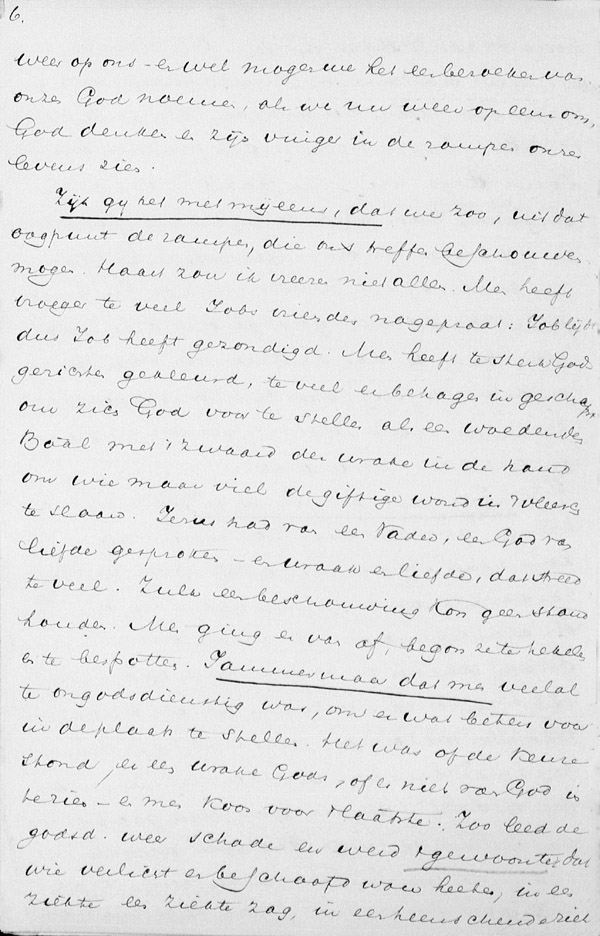 6.
weer op ons – en wel mogen we het een bezoeken van
onzen God noemen, als we nu weer op eens om
God denken en zijn vinger in de rampen onzes
levens zien.
Zijt gij het met mij eens, dat we zoo, uit dat
oogpunt de rampen, die ons treffen beschouwen
mogen. Haast zou ik vreezen niet allen. Men heeft
vroeger te veel Jobs vrienden nagepraat: Job lijdt
dus Job heeft gezondigd. Men heeft te sterk Gods
gerichten gekleurd, te veel er behagen in geschapen
om zich God voor te stellen als een woedenden
Baäl met 't zwaard der wrake in de hand
om wie maar viel de giftige wond in 't vleesch
te slaan. Jezus had van een Vader, een God van
liefde gesproken – en wraak en liefde, dat streed
te veel. Zulk een beschouwing kon geen stand
houden. Men ging er van af, begon ze te hekelen
en te bespotten. Jammer maar dat men veelal
te ongodsdienstig was, om er wat beters voor
in de plaats te stellen. Het was of de keuze
stond, en een wrake Gods, of er niet van God in
te zien – en men koos voor 't laatste. Zoo leed de
godsd. weer schade en werd 't gewoonte dat
wie verlicht en beschaafd wou heeten, in een
ziekte een ziekte zag, in een heerschende ziek